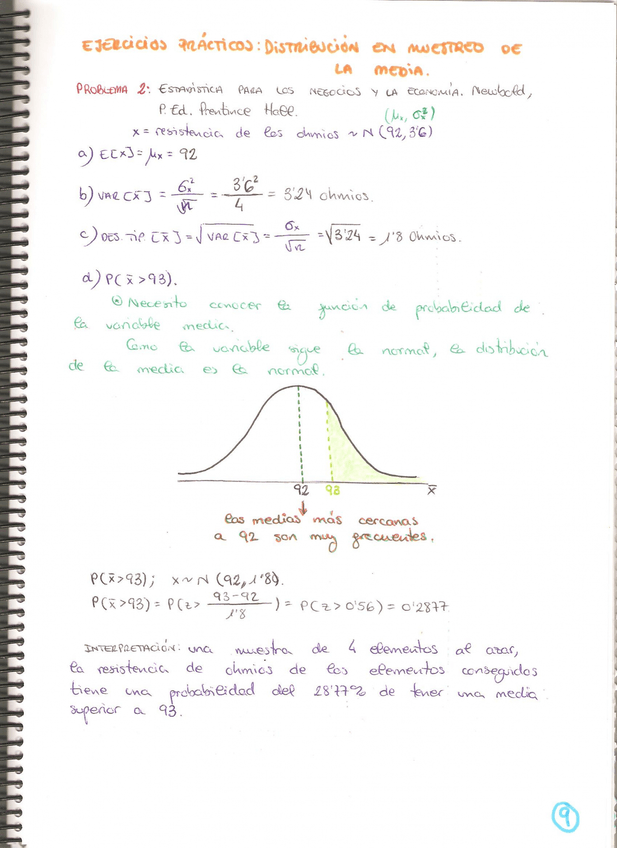 EJERCICIOS PRÁCTICOS: DISTRIBUCIÓN EN MUESTREO DE
LA MEDIA.
PROBLEMA 2: ESTADÍSTICA PARA LOS NEGOCIOS Y LA ECONOMÍA. Newbold,
P. Ed. Prentince Hall.
(μₓ, σₓ²)
x = resistencia de los ohmios ~ N (92, 3'6)
a) E[x̄] = μₓ = 92
b) VAR [x̄] = σₓ²/n = 3'6²/4 = 3'24 ohmios.
c) DES. TIP. [x̄] = √VAR [x̄] = σₓ/√n = √3'24 = 1'8 Ohmios.
d) P(x̄ > 93).
Necesito conocer la función de probabilidad de
la variable media.
Como la variable sigue la normal, la distribución
de la media es la normal.
92 93 x̄
las medias más cercanas
a 92 son muy frecuentes.
P(x̄ > 93); x ~ N (92, 1'8).
P(x̄ > 93) = P(z > 93-92/1'8) = P(z > 0'56) = 0'2877
INTERPRETACIÓN: una muestra de 4 elementos al azar,
la resistencia de ohmios de los elementos conseguidos
tiene una probabilidad del 28'77% de tener una media
superior a 93.
9